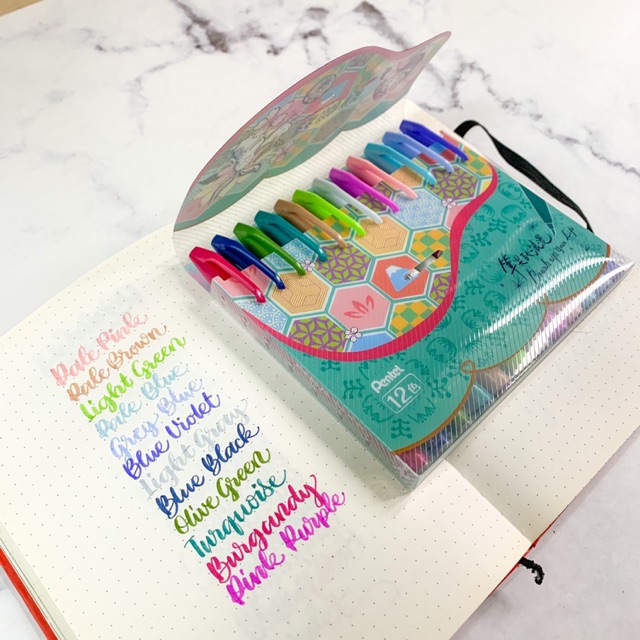 Pale Pink
Pale Brown
Light Green
Pale Blue
Grey Blue
Blue Violet
Light Gray
Blue Black
Olive Green
Turquoise
Burgandy
Pink Purple
筆タッチ
Pentel
12色